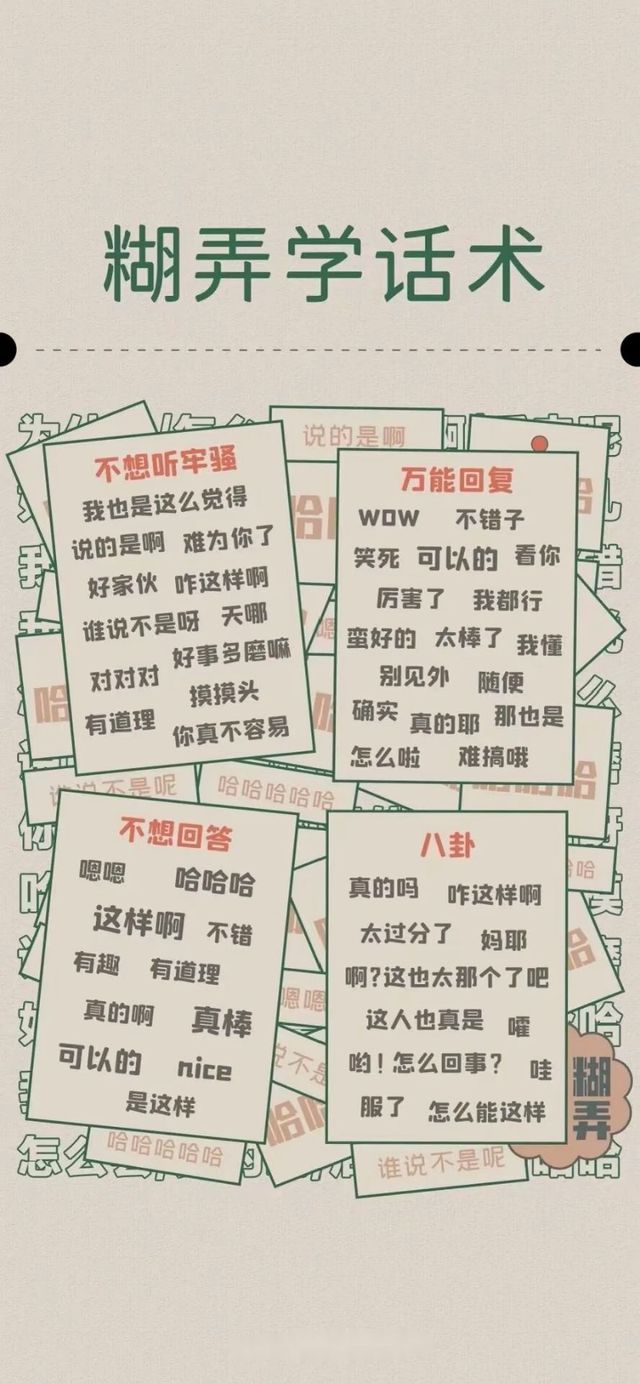 糊弄学话术
说的是啊
不想听牢骚
我也是这么觉得
说的是啊 难为你了
好家伙 咋这样啊
谁说不是呀 天哪
对对对 好事多磨嘛
摸摸头
有道理 你真不容易
万能回复
WOW 不错子
笑死 可以的 看你
厉害了 我都行
蛮好的 太棒了 我懂
别见外 随便
确实 真的耶 那也是
怎么啦 难搞哦
谁说不是呢
哈哈哈哈哈
不想回答
嗯嗯 哈哈哈
这样啊 不错
有趣 有道理
真的啊 真棒
可以的 nice
是这样
八卦
真的吗 咋这样啊
太过分了 妈耶
啊?这也太那个了吧
这人也真是 嚯
哟!怎么回事? 哇
服了 怎么能这样
糊弄
哈哈哈哈哈
谁说不是呢